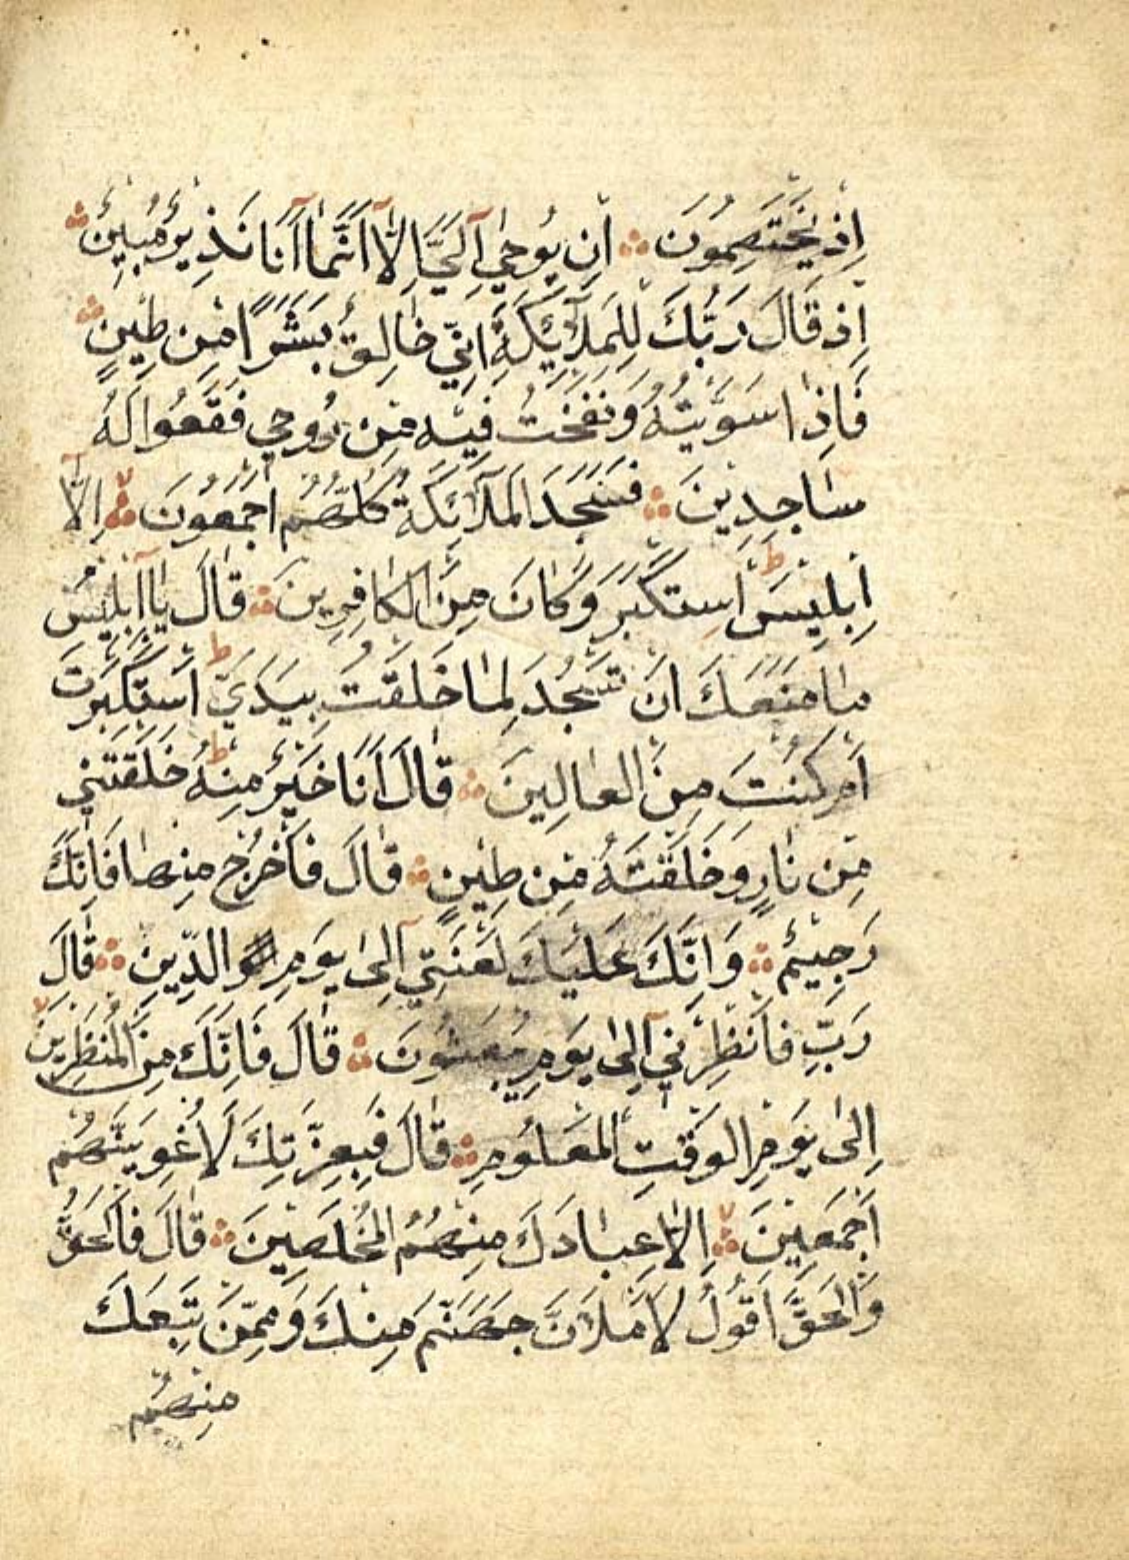 اِذْ يَخْتَصِمُونَ ۞ اِنْ يُوحٰٓى اِلَيَّ اِلَّٓا اَنَّمَٓا اَنَا۬ نَذِيرٌ مُبِينٌ ۞
اِذْ قَالَ رَبُّكَ لِلْمَلٰٓئِكَةِ اِنِّي خَالِقٌ بَشَرًا مِنْ طِينٍ ۞
فَاِذَا سَوَّيْتُهُ وَنَفَخْتُ فِيهِ مِنْ رُوحِي فَقَعُوا لَهُ
سَاجِدِينَ ۞ فَسَجَدَ الْمَلٰٓئِكَةُ كُلُّهُمْ اَجْمَعُونَ ۞ اِلَّٓا
اِبْلِيسَ ط اِسْتَكْبَرَ وَكَانَ مِنَ الْكَافِرِينَ ۞ قَالَ يَٓا اِبْلِيسُ
مَا مَنَعَكَ اَنْ تَسْجُدَ لِمَا خَلَقْتُ بِيَدَيَّ ط اَسْتَكْبَرْتَ
اَمْ كُنْتَ مِنَ الْعَالِينَ ۞ قَالَ اَنَا خَيْرٌ مِنْهُ ط خَلَقْتَنِي
مِنْ نَارٍ وَخَلَقْتَهُ مِنْ طِينٍ ۞ قَالَ فَاخْرُجْ مِنْهَا فَاِنَّكَ
رَجِيمٌ ۞ وَاِنَّ عَلَيْكَ لَعْنَتِٓي اِلٰى يَوْمِ الدِّينِ ۞ قَالَ
رَبِّ فَاَنْظِرْنِٓي اِلٰى يَوْمِ يُبْعَثُونَ ۞ قَالَ فَاِنَّكَ مِنَ الْمُنْظَرِينَ
اِلٰى يَوْمِ الْوَقْتِ الْمَعْلُومِ ۞ قَالَ فَبِعِزَّتِكَ لَاُغْوِيَنَّهُمْ
اَجْمَعِينَ ۞ اِلَّا عِبَادَكَ مِنْهُمُ الْمُخْلَصِينَ ۞ قَالَ فَالْحَقُّ
وَالْحَقَّ اَقُولُ لَاَمْلَاَنَّ جَهَنَّمَ مِنْكَ وَمِمَّنْ تَبِعَكَ
مِنْهُمْ